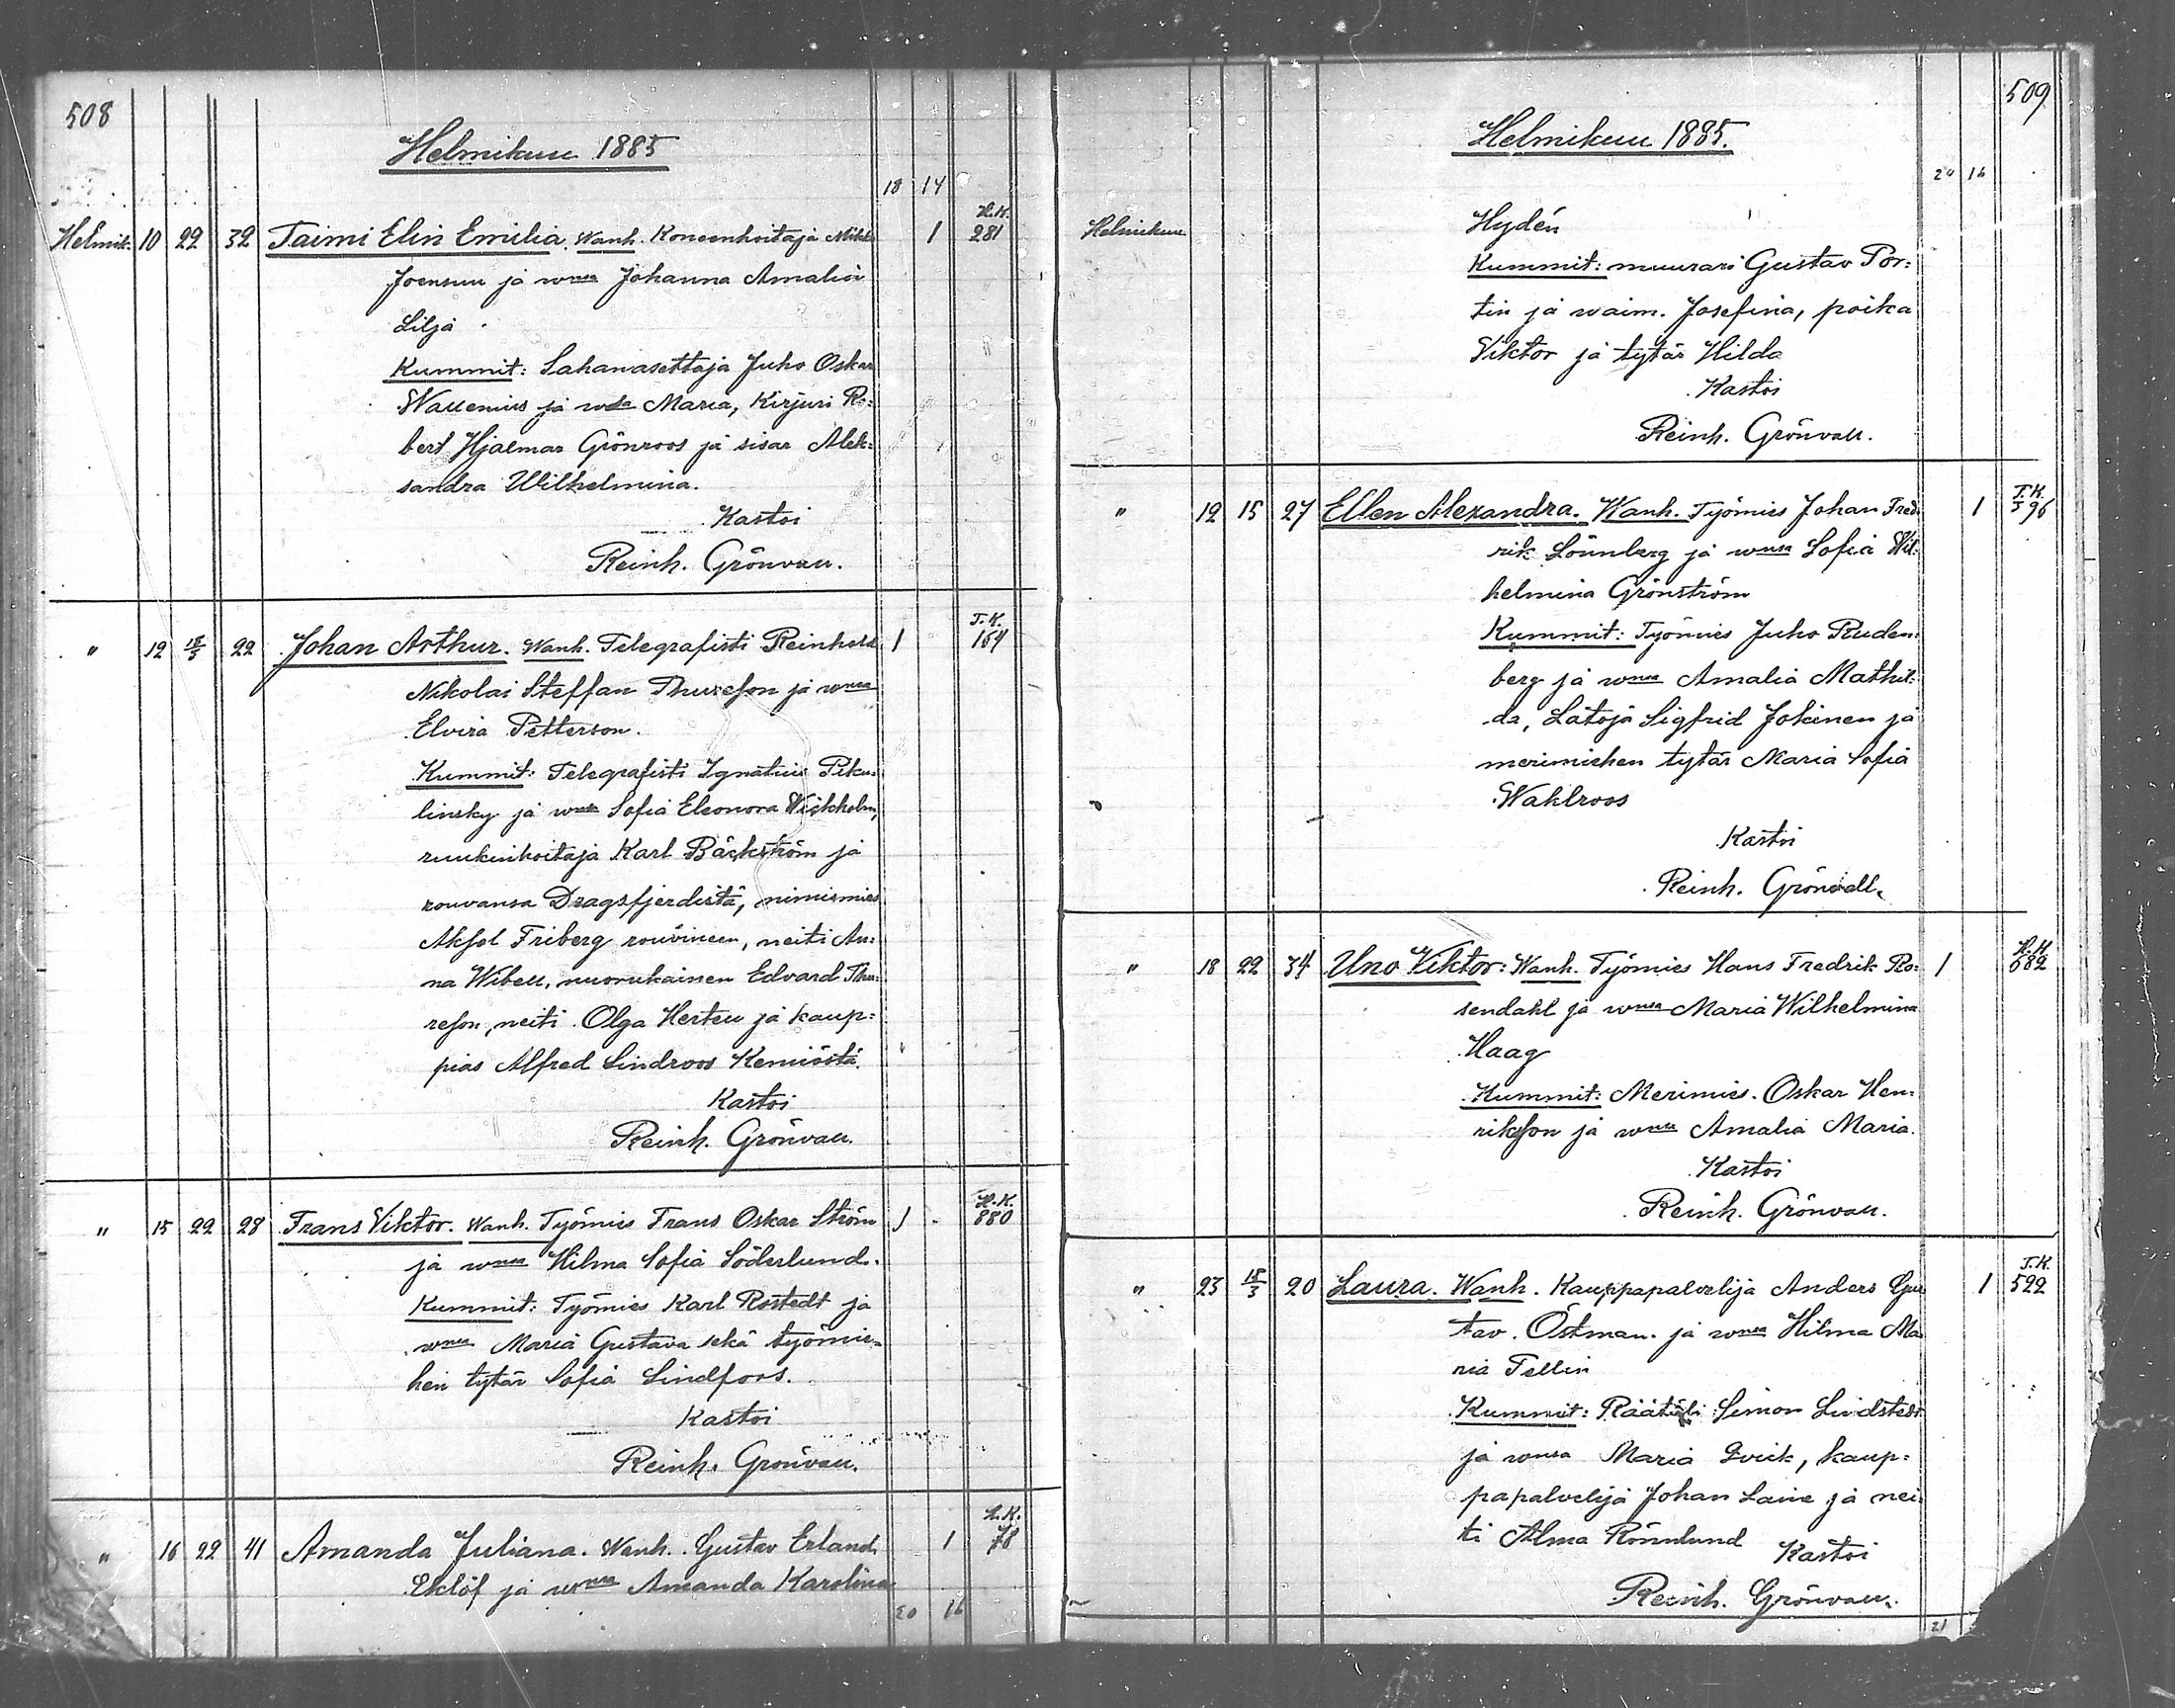 508
Helmikuu 1885
18 14
Helmik. 10 22 32 Taimi Elin Emilia. Wanh. Koneenhoitaja Mikko 1 H.K. 281
Joensuu ja wnsa Johanna Amalia
Lilja
Kummit: Sahanasettaja Juho Oskar
Wallenius ja wsa Maria, Kirjuri Ro=
bert Hjalmar Grönroos ja sisar Alek=
sandra Wilhelmina.
Kastoi
Reinh. Grönvall.
" 12 15/3 22 Johan Arthur. Wanh. Telegrafisti Reinhold 1 T.K. 164
Nikolai Steffan Thureson ja wnsa
Elvira Petterson.
Kummit: Telegrafisti Ignatius Piku=
linsky ja wnsa Sofia Eleonora Wickholm,
ruukinhoitaja Karl Bäckström ja
rouvansa Dragsfjerdistä, nimismies
Aksel Friberg rouvineen, neiti An=
na Wibell, nuorukainen Edvard Thu=
reson, neiti Olga Hertell ja kaup=
pias Alfred Lindroos Kemiöstä.
Kastoi
Reinh. Grönvall.
" 15 22 28 Frans Viktor. Wanh. Työmies Frans Oskar Ström 1 H.K. 880
ja wnsa Hilma Sofia Söderlund.
Kummit: Työmies Karl Rostedt ja
wnsa Maria Gustava sekä työmie=
hen tytär Sofia Lindfors.
Kastoi
Reinh. Grönvall.
" 16 22 41 Amanda Juliana. Wanh. Gustav Erland 1 H.K. 78
Eklöf ja wnsa Amanda Karolina
20 16
509
Helmikuu 1885.
20 16
Helmikuu
Hydén
Kummit: muurari Gustav Pör=
tin ja waim. Josefina, poika
Viktor ja tytär Hilda
Kastoi
Reinh. Grönvall.
" 12 15 27 Ellen Alexandra. Wanh. Työmies Johan Fred= 1 T.K. 396
rik Lönnberg ja wnsa Sofia Wil=
helmina Grönström
Kummit: Työmies Juho Ruden=
berg ja wnsa Amalia Mathil=
da, Latoja Sigfrid Jokinen ja
merimiehen tytär Maria Sofia
Wahlroos
Kastoi
Reinh. Grönvall.
" 18 22 34 Uno Viktor: Wanh. Työmies Hans Fredrik Ro= 1 H.K. 682
sendahl ja wnsa Maria Wilhelmina
Haag
Kummit: Merimies Oskar Hen=
rikson ja wnsa Amalia Maria.
Kastoi
Reinh. Grönvall.
" 23 15/3 20 Laura. Wanh. Kauppapalvelija Anders Gus 1 T.K. 522
tav Östman ja wnsa Hilma Ma
ria Tellin
Kummit: Räätäli Simon Lindstedt
ja wnsa Maria Qvick, kaup=
papalvelija Johan Laine ja nei=
ti Alma Rönnlund Kastoi
Reinh. Grönvall.
21